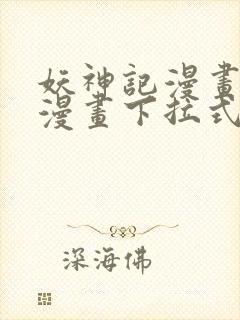 妖神記漫畫
漫畫下拉式
深海佛